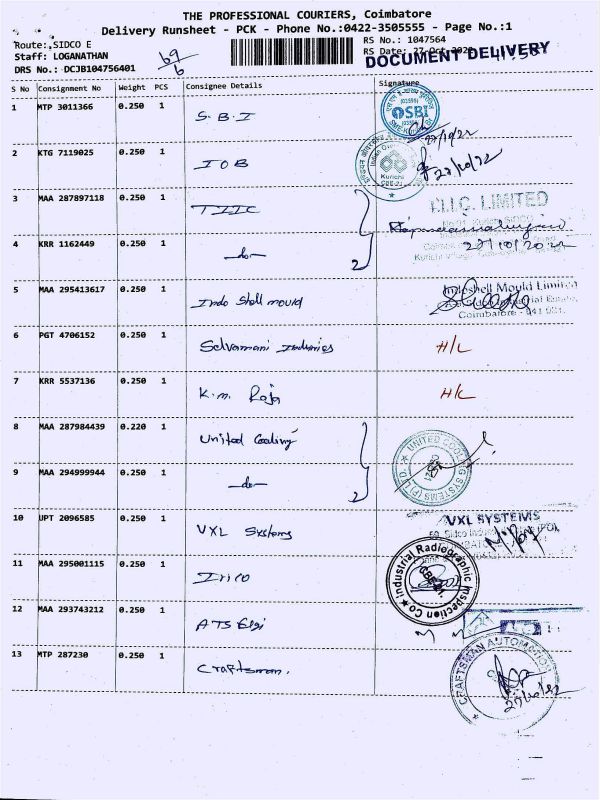 THE PROFESSIONAL COURIERS, Coimbatore
Delivery Runsheet - PCK - Phone No.:0422-3505555 - Page No.:1
Route: SIDCO E
RS No.: 1047564
Staff: LOGANATHAN
69/6
RS Date: 27 Oct 2022
DOCUMENT DELIVERY
DRS No.: DCJB104756401
S No Consignment No Weight PCS Consignee Details Signature
1 MTP 3011366 0.250 1 S.B.I
SBI
27/10/22
2 KTG 7119025 0.250 1 IOB
Kurichi
27/10/22
3 MAA 287897118 0.250 1 TIIC
LIMITED
4 KRR 1162449 0.250 1 -do- 2
27/10/2022
5 MAA 295413617 0.250 1 Indo Shell mould
Indoshell Mould Limited
Industrial Estate,
Coimbatore - 641 021.
6 PGT 4706152 0.250 1 Selvamani Industries H/L
7 KRR 5537136 0.250 1 K.m. Raja H/L
8 MAA 287984439 0.220 1 United Cooling
UNITED COOLING SYSTEMS (P) LTD.
9 MAA 294999944 0.250 1 -do- 2
10 UPT 2096585 0.250 1 VXL Systems
VXL SYSTEMS
11 MAA 295001115 0.250 1 Irico
Industrial Radiographic Inspection Co
CBE-21.
12 MAA 293743212 0.250 1 ATS Elgi
13 MTP 287230 0.250 1 Craftsman.
CRAFTSMAN AUTOMATION